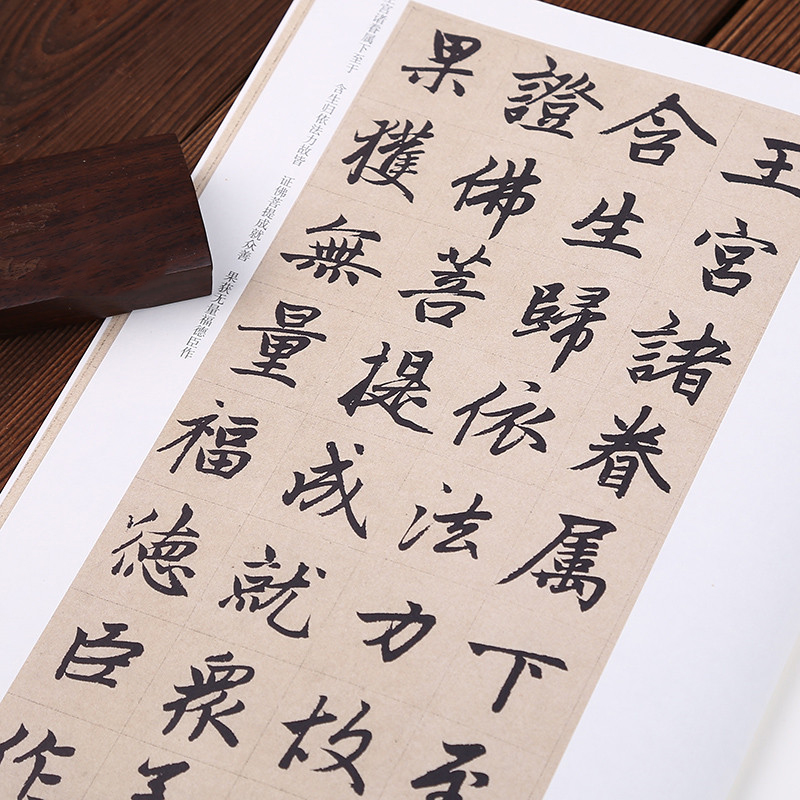 王宮諸眷属下至
含生歸依法力故
證佛菩提成就衆善
果獲無量福德臣作
王宫诸眷属下至于 含生归依法力故皆 证佛菩提成就众善 果获无量福德臣作